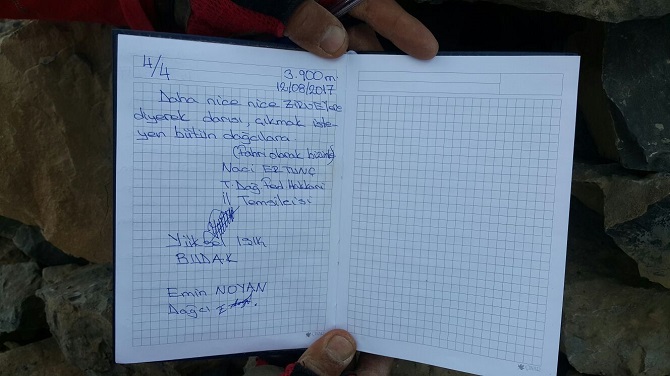 4/4
3.900m
12/08/2017
Daha nice nice ZİRVELERE
diyerek darısı, çıkmak iste-
yen bütün dağcılara
(Fahri olarak
Naci ERTUNÇ
T. Dağ Fed Hakkari
İl Temsilcisi
Yüksel IŞIK
BUDAK
Emin NOYAN
Dağcı